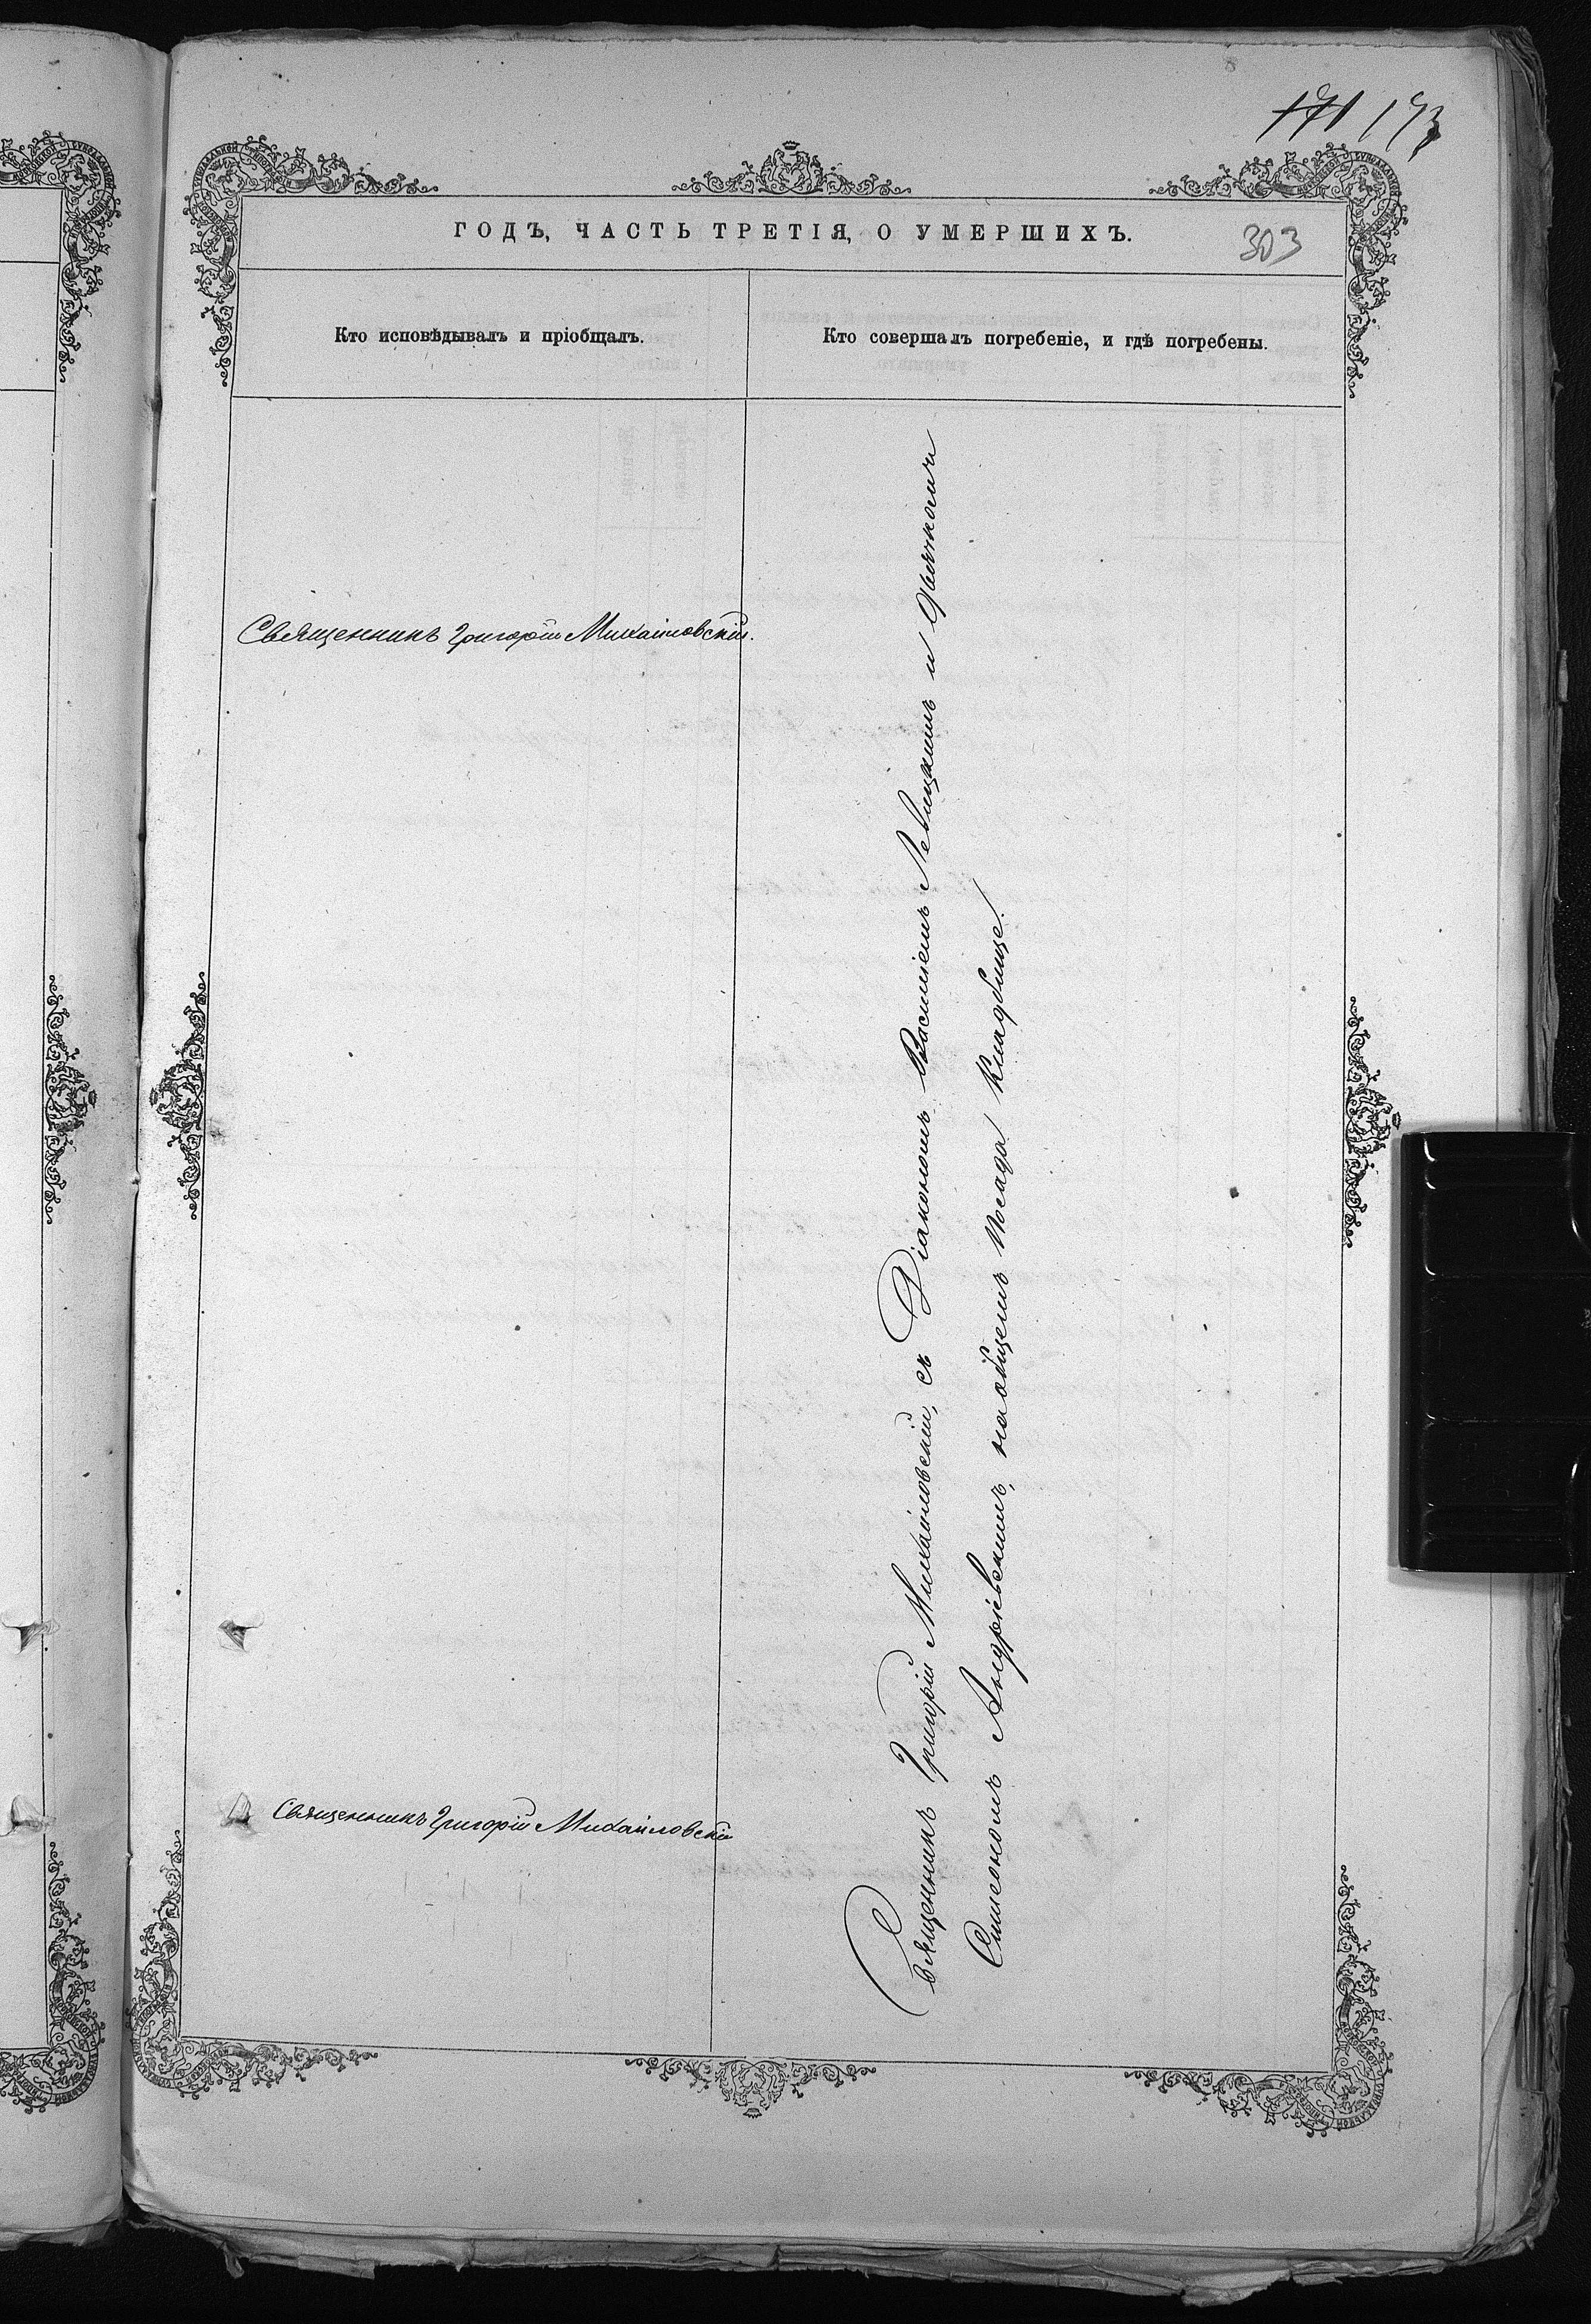 171 173
ГОДЪ, ЧАСТЬ ТРЕТІЯ, О УМЕРШИХЪ.
303
Кто исповѣдывалъ и пріобщалъ.
Кто совершалъ погребеніе, и гдѣ погребены.
Священникъ Григорій Михайловскій.
Священникъ Григорій Михайловскій
Священникъ Григорій Михайловскій, съ Діакономъ Василіемъ Левицкимъ и Дьячкомъ
Симеономъ Андріевскимъ, на общемъ посада кладбище.